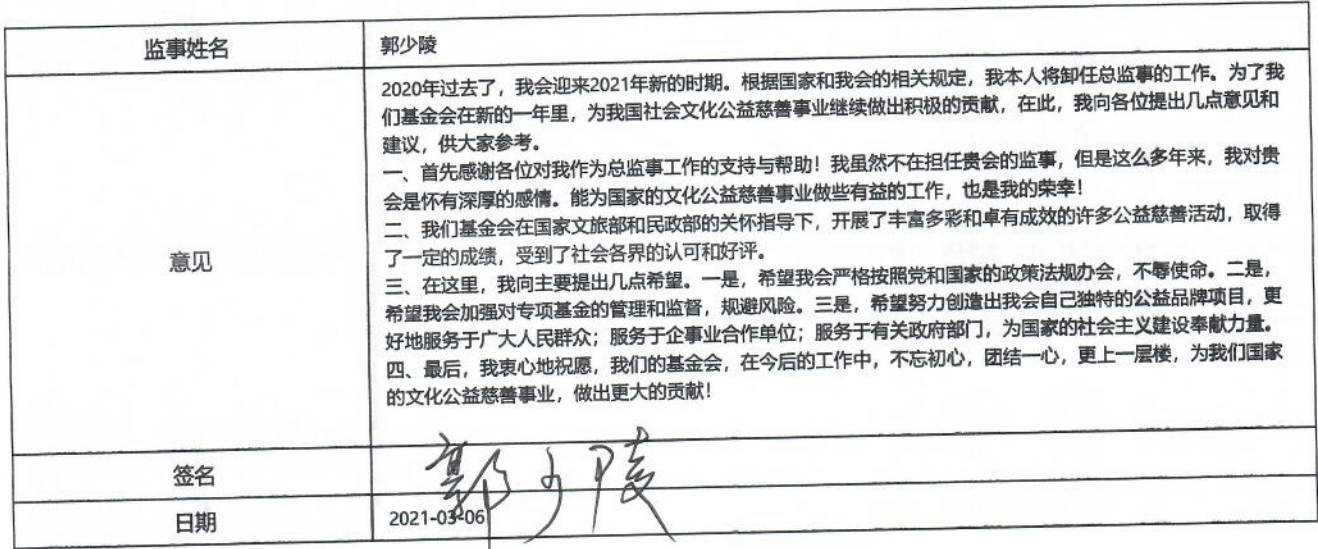 监事姓名
郭少陵
意见
2020年过去了，我会迎来2021年新的时期。根据国家和我会的相关规定，我本人将卸任总监事的工作。为了我
们基金会在新的一年里，为我国社会文化公益慈善事业继续做出积极的贡献，在此，我向各位提出几点意见和
建议，供大家参考。
一、首先感谢各位对我作为总监事工作的支持与帮助！我虽然不在担任贵会的监事，但是这么多年来，我对贵
会是怀有深厚的感情。能为国家的文化公益慈善事业做些有益的工作，也是我的荣幸！
二、我们基金会在国家文旅部和民政部的关怀指导下，开展了丰富多彩和卓有成效的许多公益慈善活动，取得
了一定的成绩，受到了社会各界的认可和好评。
三、在这里，我向主要提出几点希望。一是，希望我会严格按照党和国家的政策法规办会，不辱使命。二是，
希望我会加强对专项基金的管理和监督，规避风险。三是，希望努力创造出我会自己独特的公益品牌项目，更
好地服务于广大人民群众；服务于企事业合作单位；服务于有关政府部门，为国家的社会主义建设奉献力量。
四、最后，我衷心地祝愿，我们的基金会，在今后的工作中，不忘初心，团结一心，更上一层楼，为我们国家
的文化公益慈善事业，做出更大的贡献！
签名
郭少陵
日期
2021-03-06